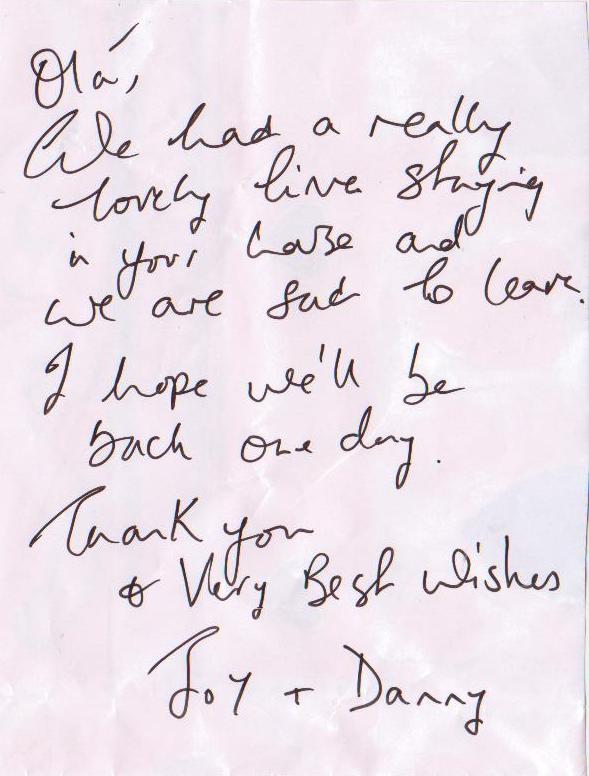 Olá,
We had a really
lovely time staying
in your house and
we are sad to leave.
I hope we'll be
back one day.
Thank you
& Very Best Wishes
Joy + Danny